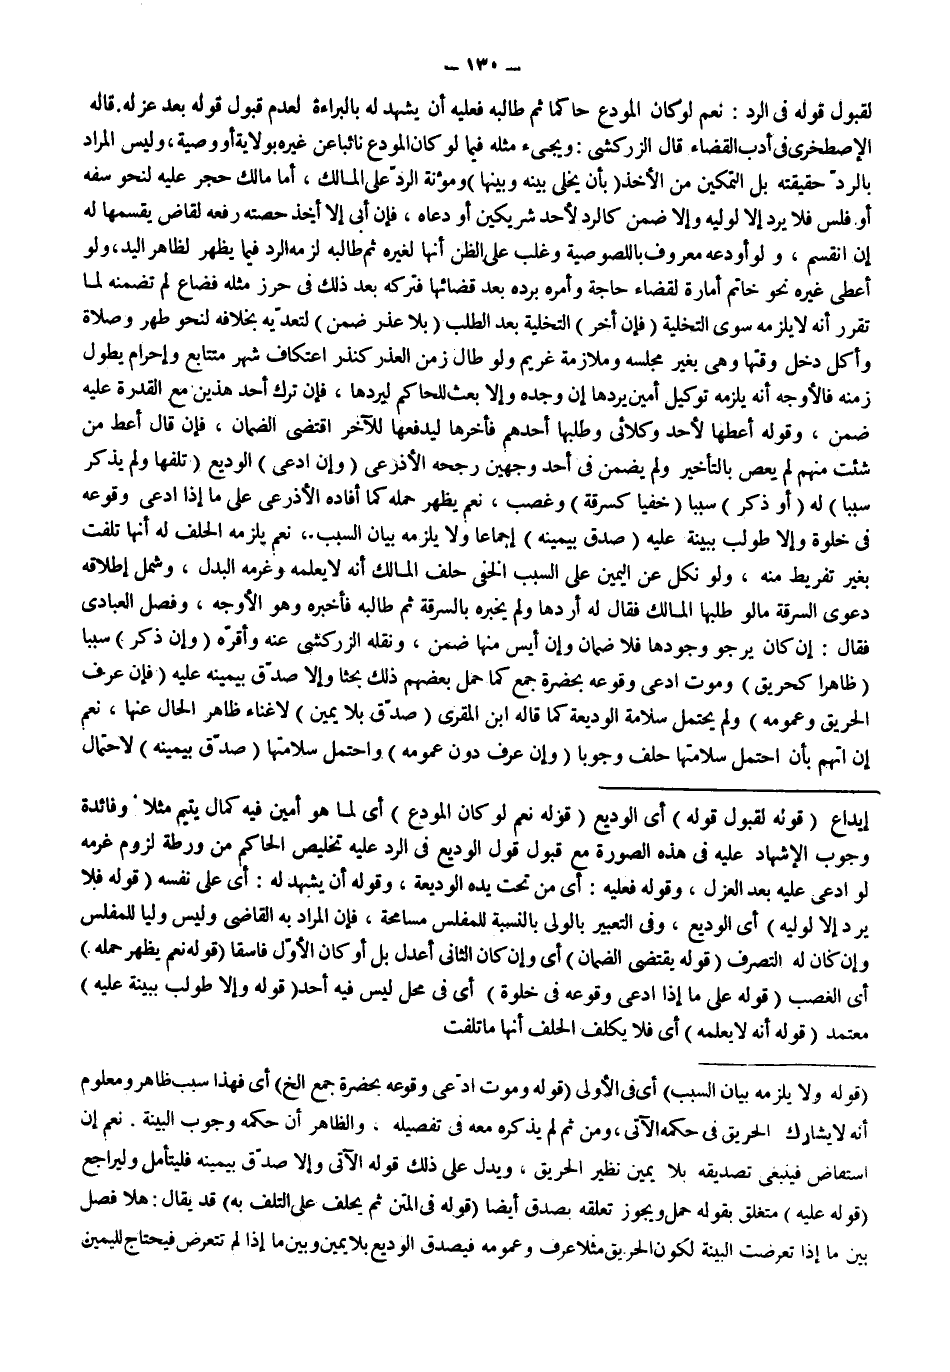 — ١٣٠ —
لقبول قوله فى الرد : نعم لو كان المودع حاكما ثم طالبه فعليه أن يشهد له بالبراءة لعدم قبول قوله بعد عزله. قاله
الإصطخرى فى أدب القضاء قال الزركشى : ويجىء مثله فيما لو كان المودع نائبا عن غيره بولاية أو وصية ، وليس المراد
بالردّ حقيقته بل التمكين من الأخذ ( بأن يخلى بينه وبينها ) ومؤنة الردّ على المالك ، أما مالك حجر عليه لنحو سفه
أو فلس فلا يرد إلا لوليه وإلا ضمن كالرد لأحد شريكين أودعاه ، فإن أبى إلا أخذ حصته رفعه لقاض يقسمها له
إن انقسم ، و لو أودعه معروف باللصوصية وغلب على الظن أنها لغيره ثم طالبه لزمه الرد فيما يظهر لظاهر اليد ، ولو
أعطى غيره نحو خاتم أمارة لقضاء حاجة وأمره برده بعد قضائها فتركه بعد ذلك فى حرز مثله فضاع لم تضمنه لما
تقرر أنه لا يلزمه سوى التخلية ( فإن أخر ) التخلية بعد الطلب ( بلا عذر ضمن ) لتعديه بخلافه لنحو طهر وصلاة
وأكل دخل وقتها وهى بغير مجلسه وملازمة غريم ولو طال زمن العذر كنذر اعتكاف شهر متتابع وإحرام يطول
زمنه فالأوجه أنه يلزمه توكيل أمين يردها إن وجده وإلا بعث للحاكم ليردها ، فإن ترك أحد هذين مع القدرة عليه
ضمن ، وقوله أعطها لأحد وكلائى وطلبها أحدهم فأخرها ليدفعها للآخر اقتضى الضمان ، فإن قال أعط من
شئت منهم لم يعص بالتأخير ولم يضمن فى أحد وجهين رجحه الأذرعى ( وإن ادعى ) الوديع ( تلفها ولم يذكر
سببا ) له ( أو ذكر ) سببا ( خفيا كسرقة ) وغصب ، نعم يظهر حمله كما أفاده الأذرعى على ما إذا ادعى وقوعه
فى خلوة وإلا طولب ببينة عليه ( صدق بيمينه ) إجماعا ولا يلزمه بيان السبب ، نعم يلزمه الحلف له أنها تلفت
بغير تفريط منه ، ولو نكل عن اليمين على السبب الخفى حلف المالك أنه لا يعلمه وغرمه البدل ، وشمل إطلاقه
دعوى السرقة مالو طلبها المالك فقال له أردها ولم يخبره بالسرقة ثم طالبه فأخبره وهو الأوجه ، وفصل العبادى
فقال : إن كان يرجو وجودها فلا ضمان وإن أيس منها ضمن ، ونقله الزركشى عنه وأقرّه ( وإن ذكر ) سببا
( ظاهرا كحريق ) وموت ادعى وقوعه بحضرة جمع كما حمل بعضهم ذلك بحثا وإلا صدّق بيمينه عليه ( فإن عرف
الحريق وعمومه ) ولم يحتمل سلامة الوديعة كما قاله ابن المقرى ( صدّق بلا يمين ) لاغناء ظاهر الحال عنها ، نعم
إن اتهم بأن احتمل سلامتها حلف وجوبا ( وإن عرف دون عمومه ) واحتمل سلامتها ( صدّق بيمينه ) لاحتمال
إيداع ( قوله لقبول قوله ) أى الوديع ( قوله نعم لو كان المودع ) أى لما هو أمين فيه كمال يتيم مثلا وفائدة
وجوب الإشهاد عليه فى هذه الصورة مع قبول قول الوديع فى الرد عليه تخليص الحاكم من ورطة لزوم غرمه
لو ادعى عليه بعد العزل ، وقوله فعليه : أى من تحت يده الوديعة ، وقوله أن يشهد له : أى على نفسه ( قوله فلا
يرد إلا لوليه ) أى الوديع ، وفى التعبير بالولى بالنسبة للمفلس مسامحة ، فإن المراد به القاضى وليس وليا للمفلس
وإن كان له التصرف ( قوله يقتضى الضمان ) أى وإن كان الثانى أعدل بل أو كان الأوّل فاسقا ( قوله نعم يظهر حمله )
أى الغصب ( قوله على ما إذا ادعى وقوعه فى خلوة ) أى فى محل ليس فيه أحد ( قوله وإلا طولب ببينة عليه )
معتمد ( قوله أنه لا يعلمه ) أى فلا يكلف الحلف أنها ماتلفت
( قوله ولا يلزمه بيان السبب ) أى فى الأولى ( قوله وموت ادّعى وقوعه بحضرة جمع الخ ) أى فهذا سبب ظاهر ومعلوم
أنه لا يشارك الحريق فى حكمه الآتى ، ومن ثم لم يذكره معه فى تفصيله ، والظاهر أن حكمه وجوب البينة . نعم إن
استفاض فينبغى تصديقه بلا يمين نظير الحريق ، ويدل على ذلك قوله الآتى وإلا صدّق بيمينه فليتأمل وليراجع
( قوله عليه ) متعلق بقوله حمل ويجوز تعلقه بصدق أيضا ( قوله فى المتن ثم يحلف على التلف به ) قد يقال : هلا فصل
بين ما إذا تعرضت البينة لكون الحريق مثلا عرف وعمومه فيصدق الوديع بلا يمين وبين ما إذا لم تتعرض فيحتاج لليمين